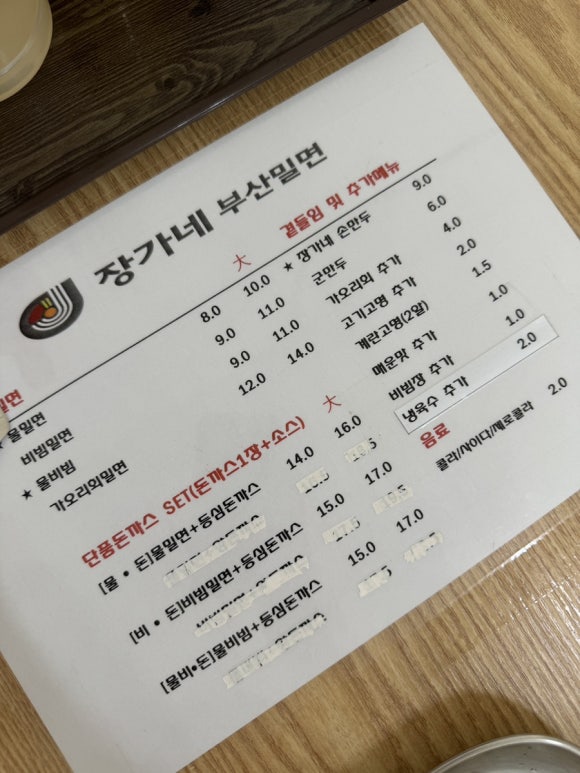 장가네 부산밀면
밀면 大
★ 물밀면 8.0 10.0
비빔밀면 9.0 11.0
★ 물비빔 9.0 11.0
가오리회밀면 12.0 14.0
곁들임 및 추가메뉴
★ 장가네 손만두 9.0
군만두 6.0
가오리회 추가 4.0
고기고명 추가 2.0
계란고명(2알) 1.5
매운맛 추가 1.0
비빔장 추가 1.0
냉육수 추가 2.0
음료
콜라/사이다/제로콜라 2.0
단품돈까스 SET(돈까스1장+소스) 大
[물 • 돈]물밀면+등심돈까스 14.0 16.0
[비 • 돈]비빔밀면+등심돈까스 15.0 17.0
[물비•돈]물비빔+등심돈까스 15.0 17.0